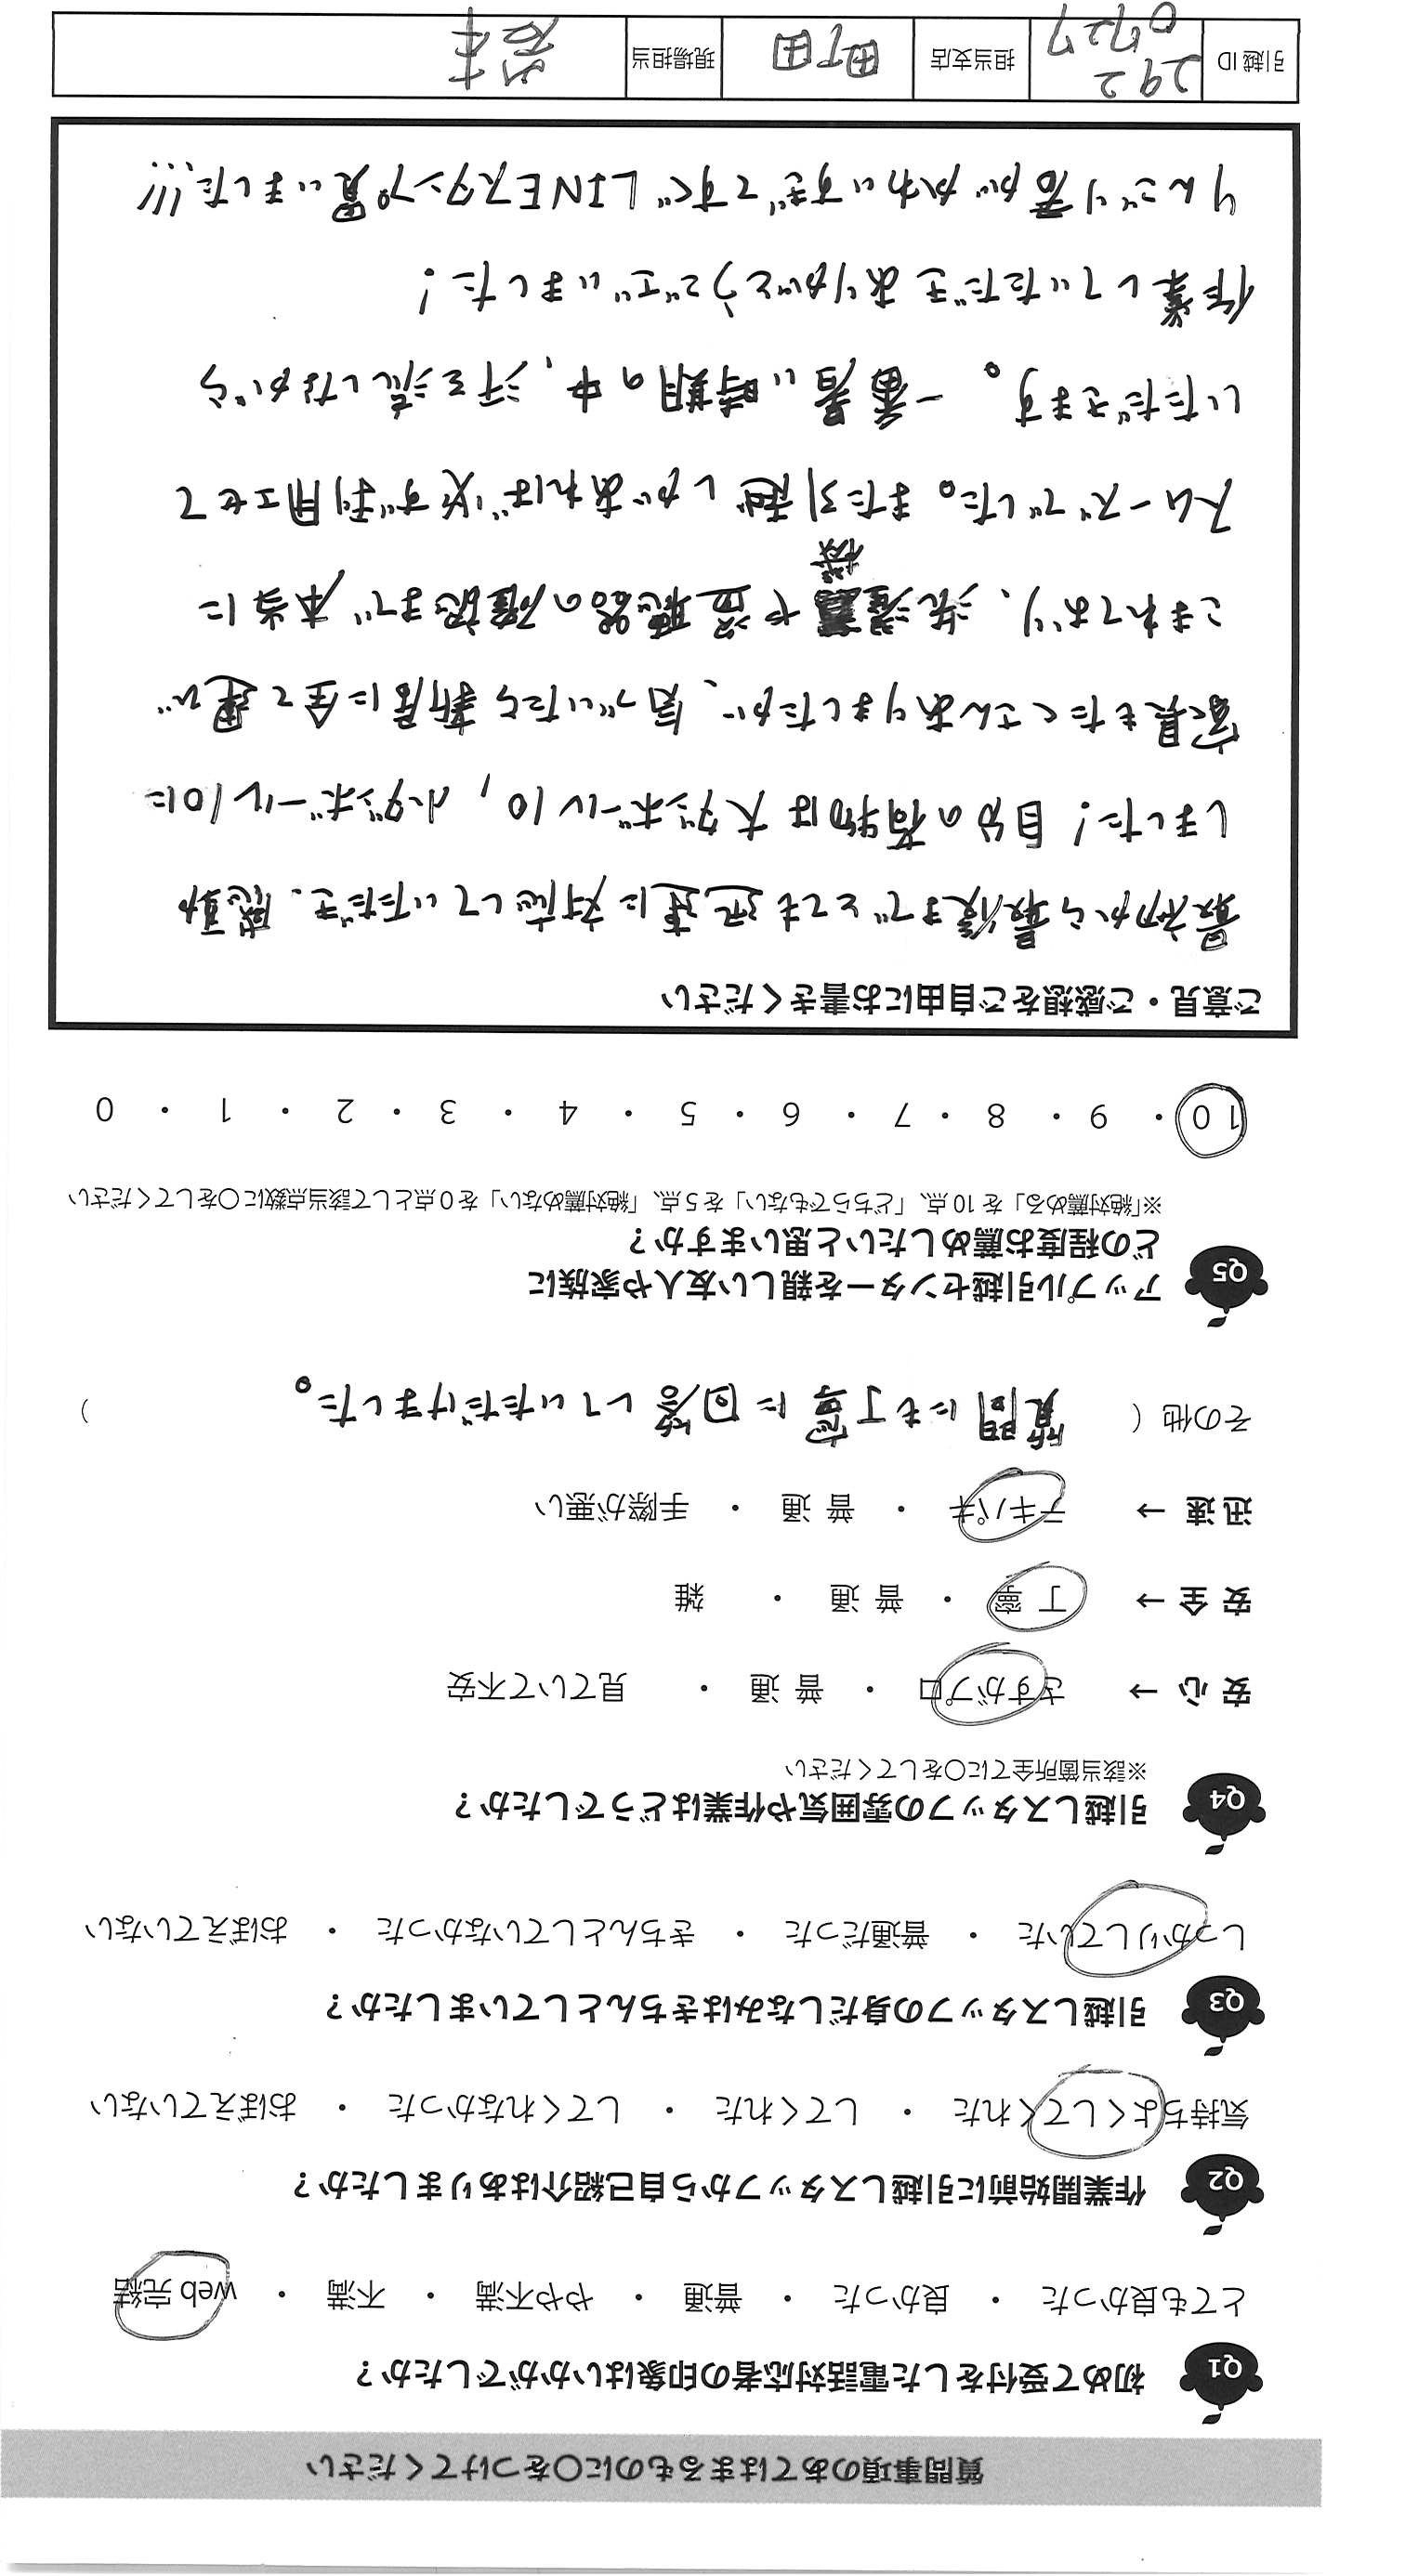 質問事項のあてはまるものに○をつけてください
Q1 初めて受付をした電話対応者の印象はいかがでしたか？
とても良かった ・ 良かった ・ 普通 ・ やや不満 ・ 不満 ・ web 完結
Q2 作業開始前に引越しスタッフから自己紹介はありましたか？
気持ちよくしてくれた ・ してくれた ・ してくれなかった ・ おぼえていない
Q3 引越しスタッフの身だしなみはきちんとしていましたか？
しっかりしていた ・ 普通だった ・ きちんとしていなかった ・ おぼえていない
Q4 引越しスタッフの雰囲気や作業はどうでしたか？
※該当箇所全てに○をしてください
安心 → さすがプロ ・ 普通 ・ 見ていて不安
安全 → 丁寧 ・ 普通 ・ 雑
迅速 → テキパキ ・ 普通 ・ 手際が悪い
その他（ 質問にも丁寧に回答していただけました。 ）
Q5 アップル引越センターを親しい友人や家族に
どの程度お薦めしたいと思いますか？
※「絶対薦める」を 10 点、「どちらでもない」を 5 点、「絶対薦めない」を 0 点として該当点数に○をしてください
10 ・ 9 ・ 8 ・ 7 ・ 6 ・ 5 ・ 4 ・ 3 ・ 2 ・ 1 ・ 0
ご意見・ご感想をご自由にお書きください
最初から最後までとても迅速に対応していただき、感動
しました！自分の荷物は大ダンボール10、小ダンボール10に
家具もたくさんありましたが、気づいたら新居に全て運び
こまれており、洗濯機や盗聴器の確認まで本当に
スムーズでした。また引越しがあれば必ず利用させて
いただきます。一番暑い時期の中、汗を流しながら
作業していただきありがとうございました！
りんごり君がかわいすぎてすぐLINEスタンプ買いました!!!
引越 ID 292 0727 担当支店 町田 現場担当 岩本